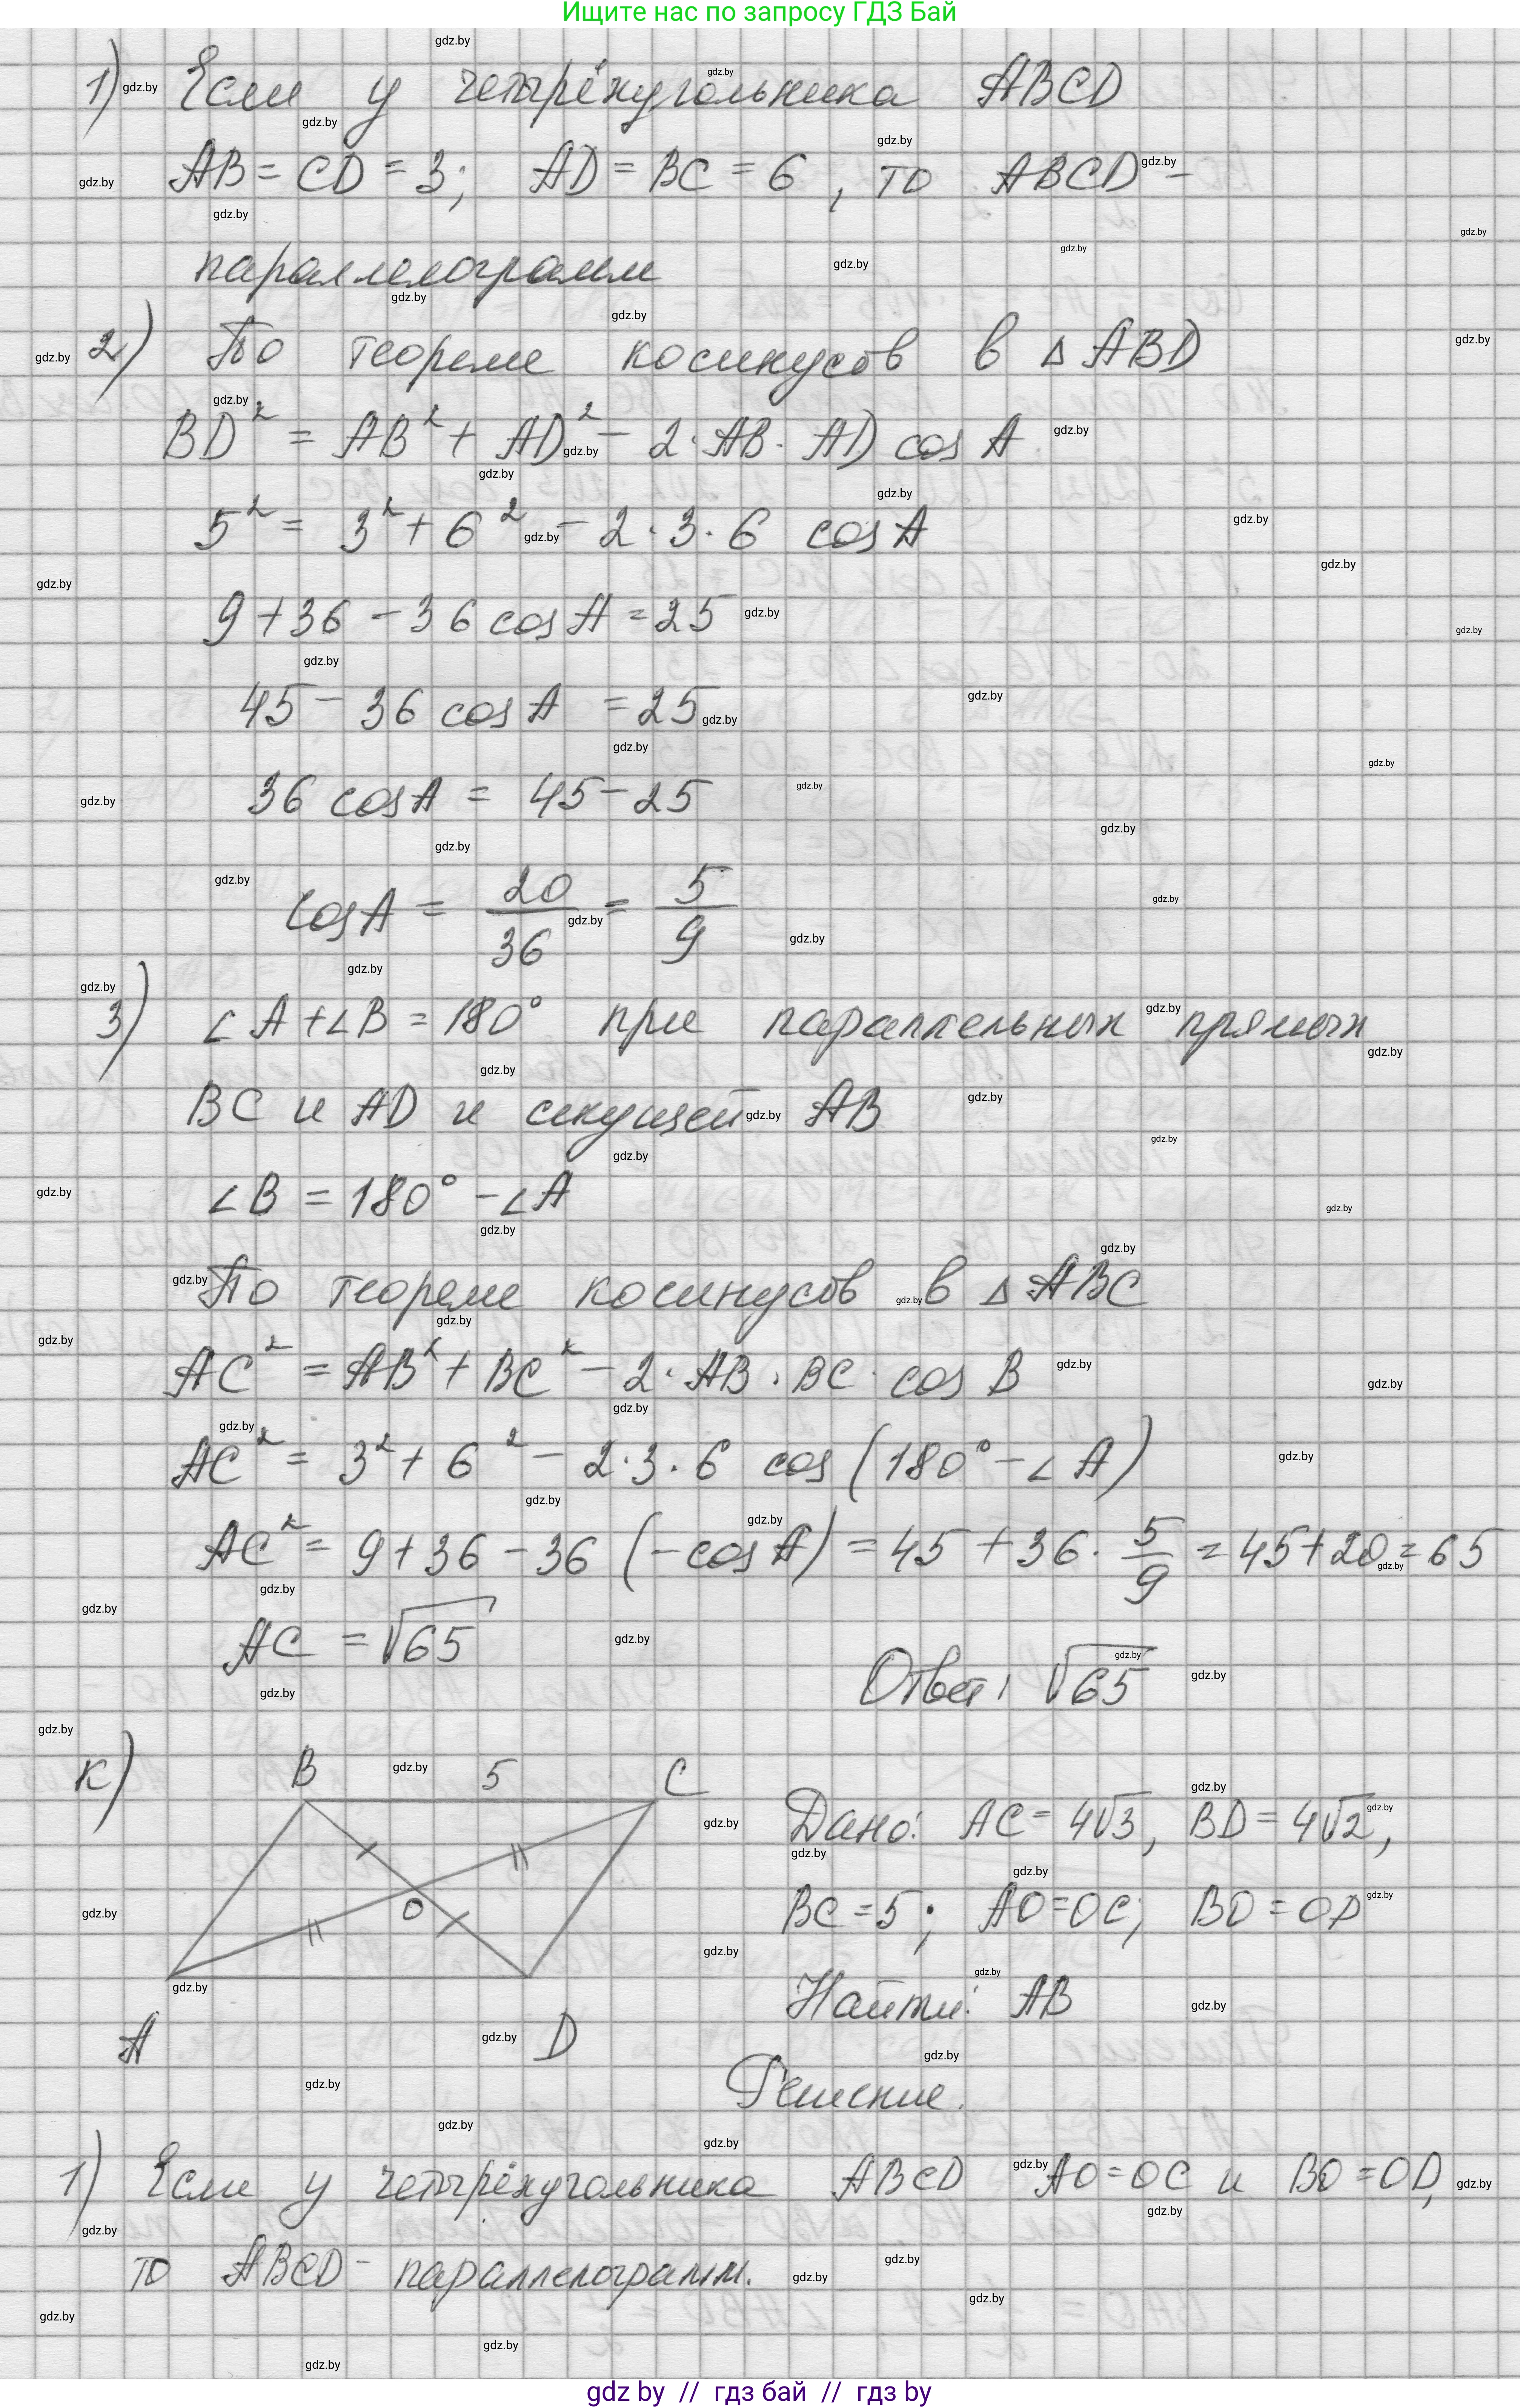 Ищите нас по запросу ГДЗ Бай
1) Если у четырёхугольника ABCD
AB = CD = 3; AD = BC = 6, то ABCD –
параллелограмм
2) По теореме косинусов в △ ABD
BD² = AB² + AD² – 2 · AB · AD cos A
5² = 3² + 6² – 2 · 3 · 6 cos A
9 + 36 – 36 cos A = 25
45 – 36 cos A = 25
36 cos A = 45 – 25
cos A = 20/36 = 5/9
3) ∠A + ∠B = 180° при параллельных прямых
BC и AD и секущей AB
∠B = 180° – ∠A
По теореме косинусов в △ ABC
AC² = AB² + BC² – 2 · AB · BC · cos B
AC² = 3² + 6² – 2 · 3 · 6 cos (180° – ∠A)
AC² = 9 + 36 – 36 (– cos A) = 45 + 36 · 5/9 = 45 + 20 = 65
AC = √65
Ответ: √65
к) B 5 C
Дано: AC = 4√3, BD = 4√2,
O
BC = 5; AO = OC; BO = OD
Найти: AB
A D
Решение.
1) Если у четырёхугольника ABCD AO = OC и BO = OD,
то ABCD – параллелограмм.
gdz by // гдз бай // гдз by